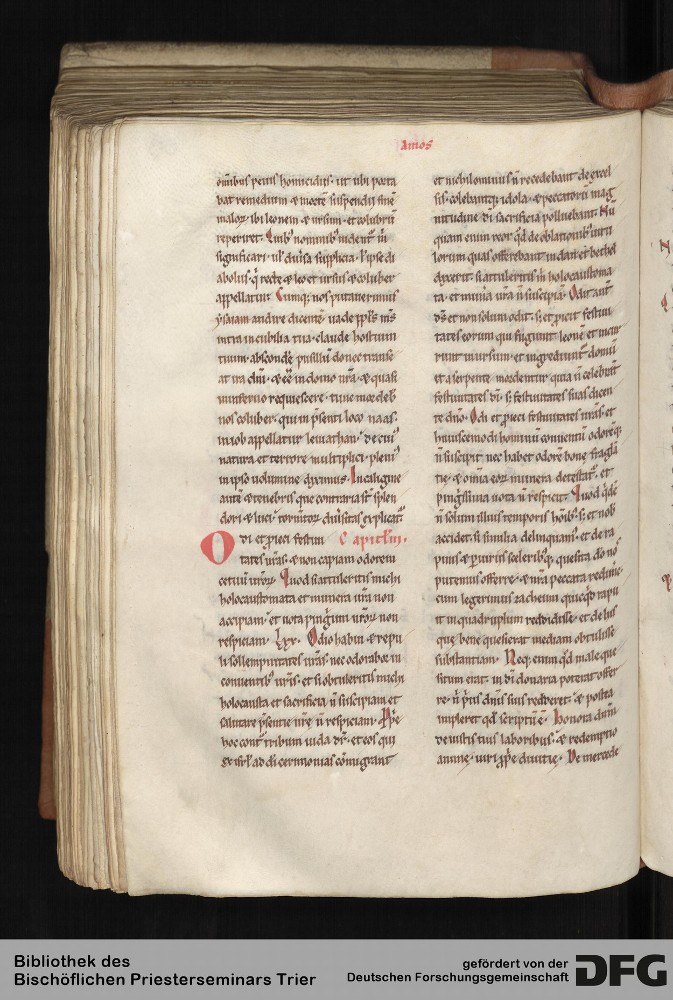 Amos
omnibus penis homicidiis. ut ubi poeta
reperiret.
significari. ul' diuersa supplicia. l' ipse di
abolus. q recte & leo et ursus & coluber
appellatur. Cumq; nos putauerimus
ysaiam audire dicente uade
intra in cubilia tua. claude hostium
tuum. abscondere pusillu donec transe
at ira dni. & ee in domo nra. & quasi
in inferno requiescere. tunc mordeb
nos coluber. qui in psenti loco naas.
in iob appellatur leuiathan. de cui
natura et terrore multiplici. pleni
in ipso uolumine diximus. In caligine
aute & tenebris que contraria st splen
dori & luci. diuersitas explicat
Odi et proieci festiui Capitlm.
tates uras. & non capiam odorem
cetuu uror. Quod si attuleritis michi
holocaustomata et munera ura non
accipiam. et uota pinguiu uror non
respiciam. Lxx. Odio habui & repu
li sollempnitates uras. nec odorabor in
conuentib uris. et si obtuleritis michi
holocausta et sacrificia n suscipiam et
salutare psentie ure n respiciam. Ppe
hoc cont tribum iuda dr. et eos qui
ex isrl ad di cerimonias comigrant
et nichilominus n recedebant de excel
sis. colebantq; idola. & peccatoru mag
nitudine di sacrificia polluebant. Nu
quam enim reor qd de oblationib
lorum quas offerebant in dan et bethel
dixerit. si attuleritis m holocaustoma
ta. et munera ura n suscipia. Odit aut
ds et non solum odit. s; et proicit festiui
tates eorum qui fugiunt leone et incur
runt in ursum. et ingrediunt domu
et a serpente mordentur quia n celebrat
festiuitates di. s; festiuitates suas dicen
te dno. Odi et pieci festiuitates uras. et
huiuscemodi hominu conuentu odoreq;
n suscipit. nec habet odore bone fragla
tie. & omia eor munera detestat. et
pinguissima uota n respicit. Quod qde
n solum illius temporis hoib. s; et nob
accidet. si similia delinquam. et de ra
pinis & piuriis sceleribq; quesita do
putemus offerre. & nra peccata redime.
cum legerimus zacheum quicqd rapu
it in quadruplum reddidisse. et de his
que bene quesierat mediam obtulisse
substantiam. Neq; enim qd male que
situm erat. in di donaria poterat offer
re. n prius dnis suis redderet. & postea
impleret qd scriptu e. honora dum
de iustis tuis laboribus. & redemptio
anime. uiri pprie diuitie. De mercede
Bibliothek des
Bischöflichen Priesterseminars Trier
gefördert von der
Deutschen Forschungsgemeinschaft
DFG